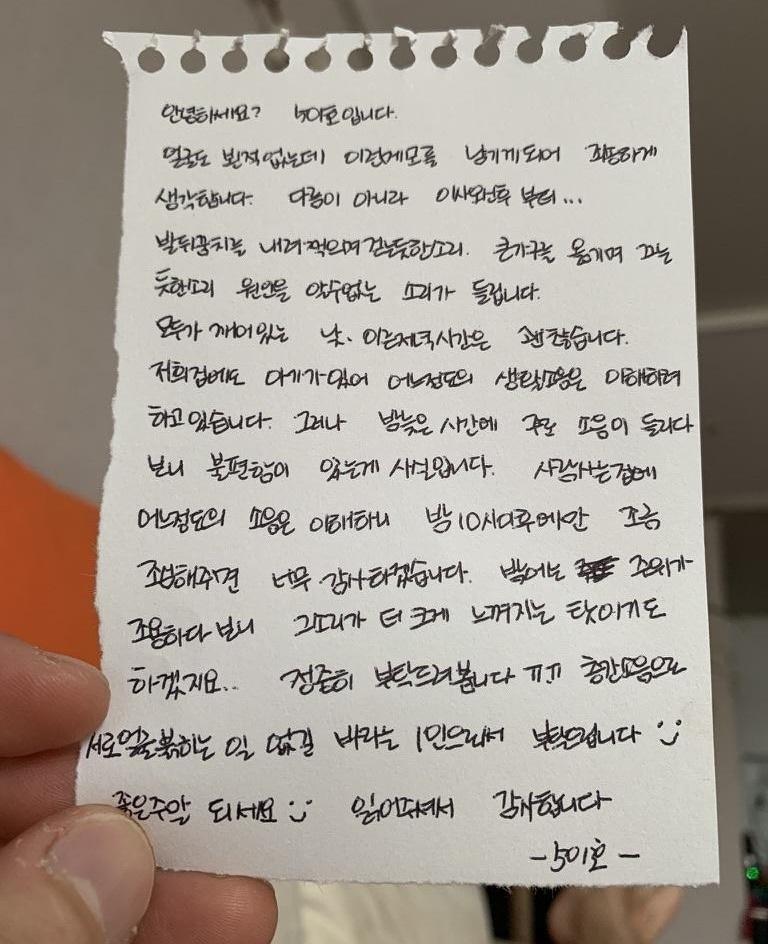 안녕하세요? 501호입니다.
얼굴도 뵌적없는데 이런메모를 남기게되어 죄송하게
생각합니다. 다름이 아니라 이사오신후 부터...
발뒤꿈치를 내려찍으며걷는듯한소리. 큰가구를 옮기며 끄는
듯한소리 원인을 알수없는 소리가 들립니다.
모두가 깨어있는 낮. 이른저녁시간은 괜찮습니다.
저희집에도 아기가있어 어느정도의 생활소음은 이해하려
하고있습니다. 그러나 밤늦은시간에 주로 소음이 들리다
보니 불편함이 있는게 사실입니다. 사람사는집에
어느정도의 소음은 이해하니 밤10시이후에만 조금
조심해주면 너무 감사하겠습니다. 밤에는 주위가
조용하다보니 그소리가 더 크게 느껴지는 탓이기도
하겠지요.. 정중히 부탁드려봅니다 ㅠㅠ 층간소음으로
서로얼굴붉히는 일 없길 바라는 1인으로서 부탁드립니다 :)
좋은주말 되세요 :) 읽어주셔서 감사합니다
- 501호 -